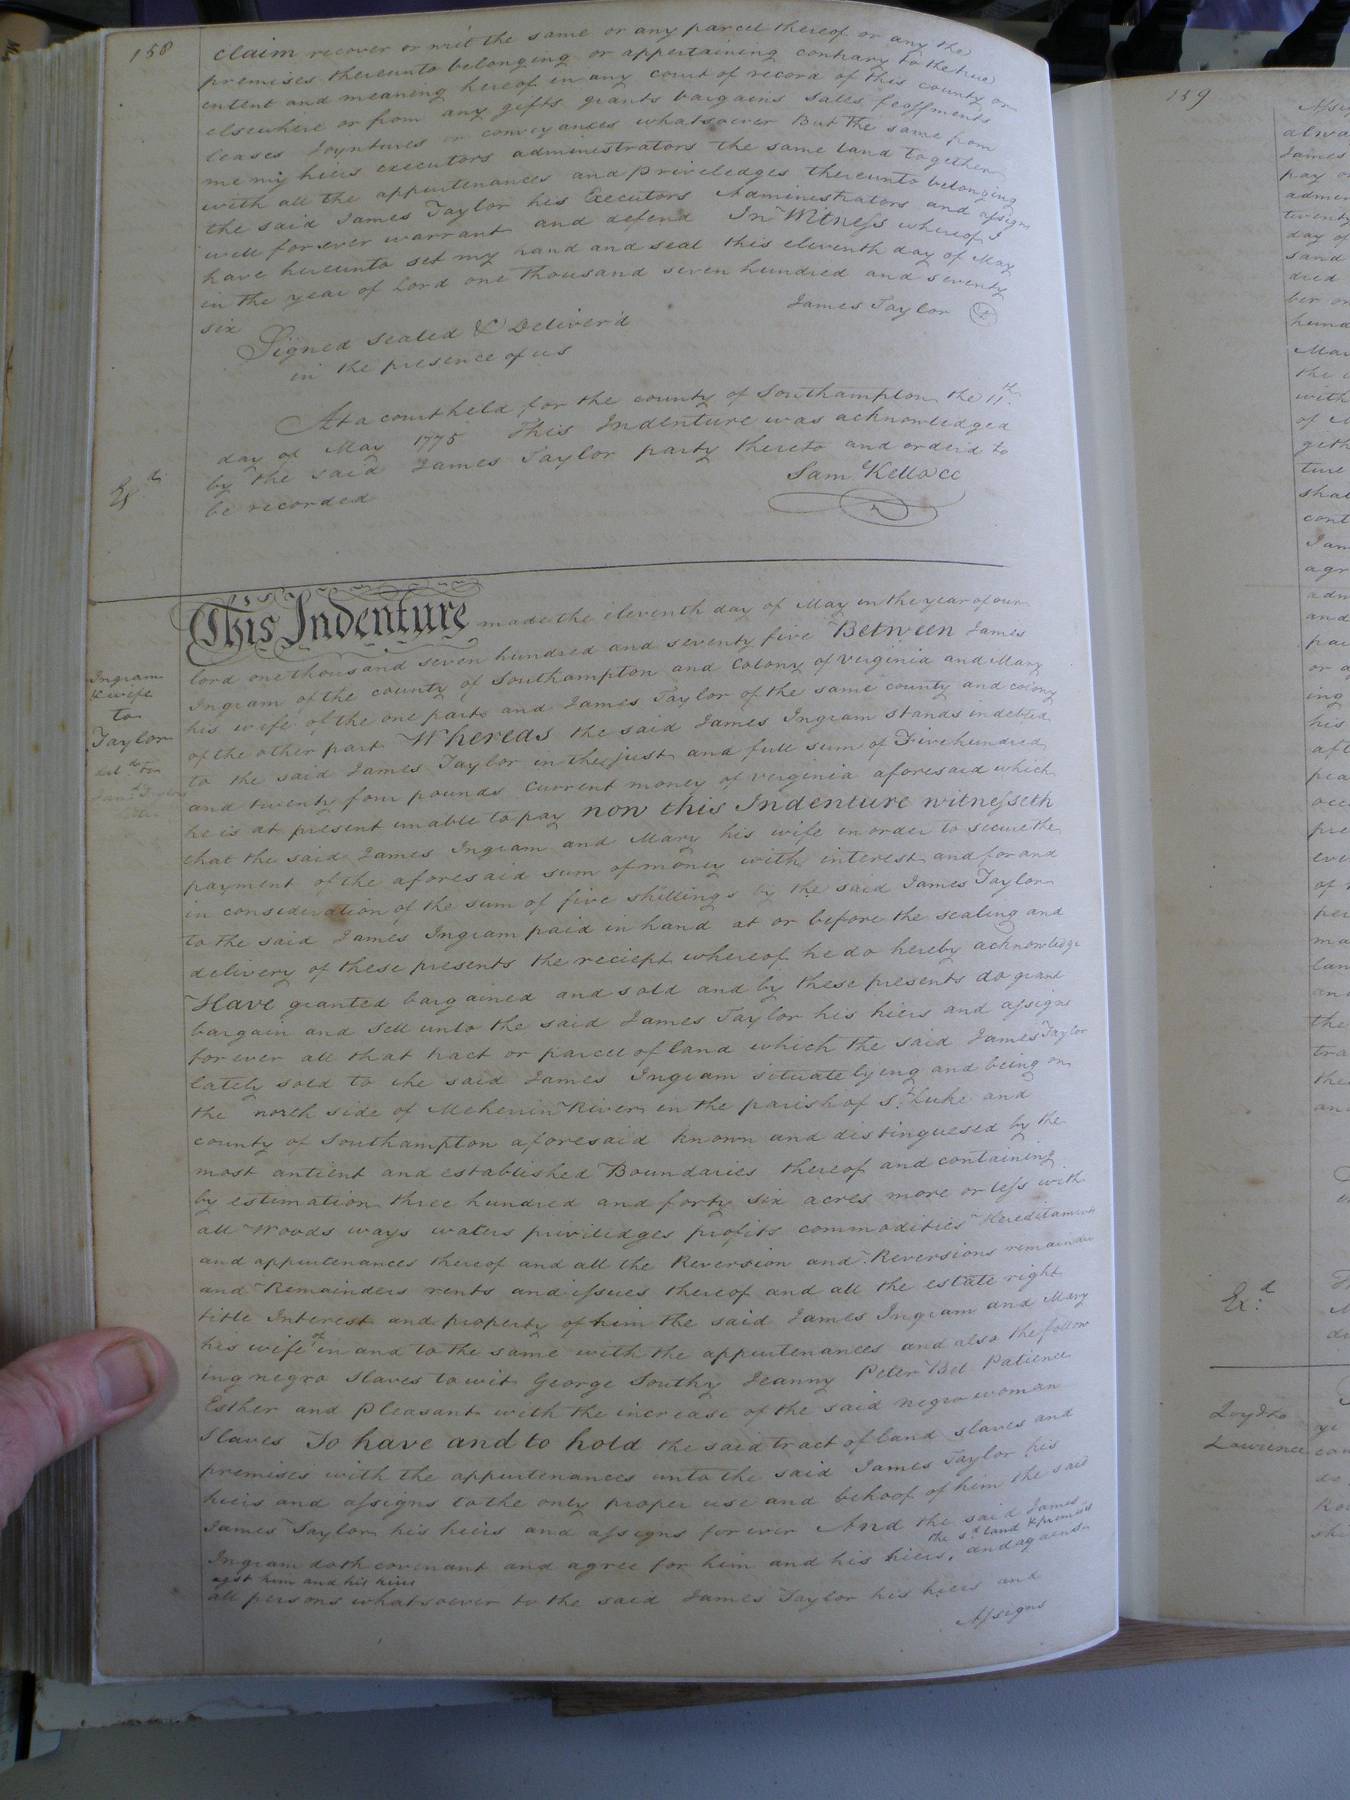 158
claim recover or writ the same or any parcel thereof or any the
premises thereunto belonging or appertaining contrary to the true
intent and meaning hereof in any court of record of this county or
elsewhere or from any gifts grants bargains sales feoffments
leases Joyntures or conveyances whatsoever But the same from
me my hiers executors administrators the same land together
with all the appurtenances and Priviledges thereunto belonging
the said James Taylor his Executors Administrators and assigns
will forever warrant and defend In Witness whereof I
have hereunto set my hand and seal this eleventh day of May
in the year of Lord one thousand seven hundred and seventy
six
James Taylor
Signed Sealed & Deliver'd
in the presence of us
At a court held for the county of Southampton the 11th
day of May 1775 This Indenture was acknowledged
by the said James Taylor party thereto and order'd to
be recorded
Sam Kello cc
This Indenture made the eleventh day of May in the year of our
lord one thousand seven hundred and seventy five Between James
Ingram of the county of Southampton and Colony of Virginia and Mary
his wife of the one part and James Taylor of the same county and colony
of the other part Whereas the said James Ingram stands indebted
to the said James Taylor in the just and full sum of Five hundred
and twenty four pounds current money of virginia aforesaid which
he is at present unable to pay now this Indenture witnesseth
that the said James Ingram and Mary his wife in order to secure the
payment of the aforesaid sum of money with interest and for and
in consideration of the sum of five shillings by the said James Taylor
to the said James Ingram paid in hand at or before the sealing and
delivery of these presents the reciept whereof he do hereby acknowledge
Have granted bargained and sold and by these presents do grant
bargain and sell unto the said James Taylor his hiers and assigns
for ever all that tract or parcel of land which the said James Taylor
lately sold to the said James Ingram situate lying and being on
the north side of Meherrin River in the parish of St. Luke and
county of Southampton aforesaid known and distinguesed by the
most antient and established Boundaries thereof and containing
by estimation three hundred and forty six acres more or less with
all Woods ways waters priviledges profits commodities Hereditaments
and appurtenances thereof and all the Reversion and Reversions remainder
and Remainders rents and issues thereof and all the estate right
title Interest and property of him the said James Ingram and Mary
his wife of in and to the same with the appurtenances and also the follow
ing negro slaves to wit George Southy Jeanny Peter Bet Patience
Esther and Pleasant with the increase of the said negro woman
slaves To have and to hold the said tract of land slaves and
premises with the appurtenances unto the said James Taylor his
hiers and assigns to the only proper use and behoof of him the said
James Taylor his hiers and assigns for ever And the said James
the sd. land & premises
Ingram doth covenant and agree for him and his hiers, and against
agst him and his hiers
all persons whatsoever to the said James Taylor his hiers and
Assigns
Ingram
& wife
to
Taylor
159
Exd.
Loyd to
Lawrence